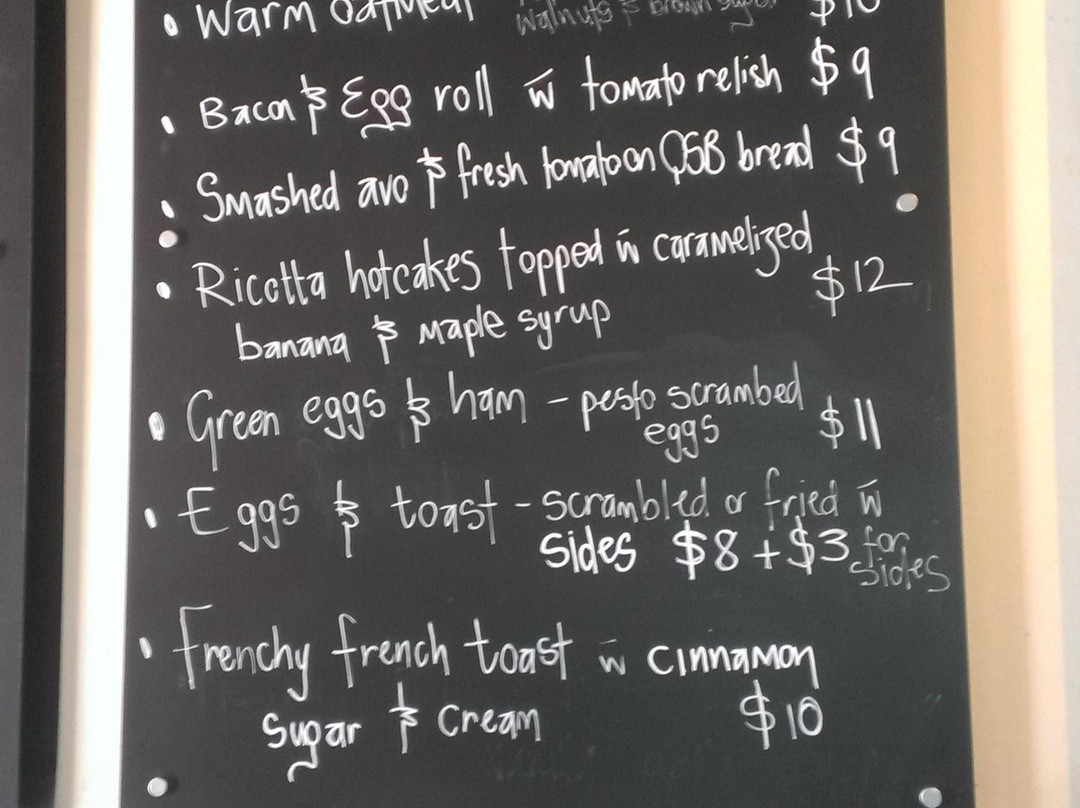 • Warm oatmeal walnuts & brown sugar $10
• Bacon & Egg roll w̄ tomato relish $9
• Smashed avo & fresh tomato on QSB bread $9
• Ricotta hotcakes topped w̄ caramelized
$12
banana & maple syrup
• Green eggs & ham - pesto scrambed
eggs $11
• Eggs & toast - scrambled or fried w̄
sides $8 + $3 for
sides
• Frenchy french toast w̄ cinnamon
sugar & cream $10